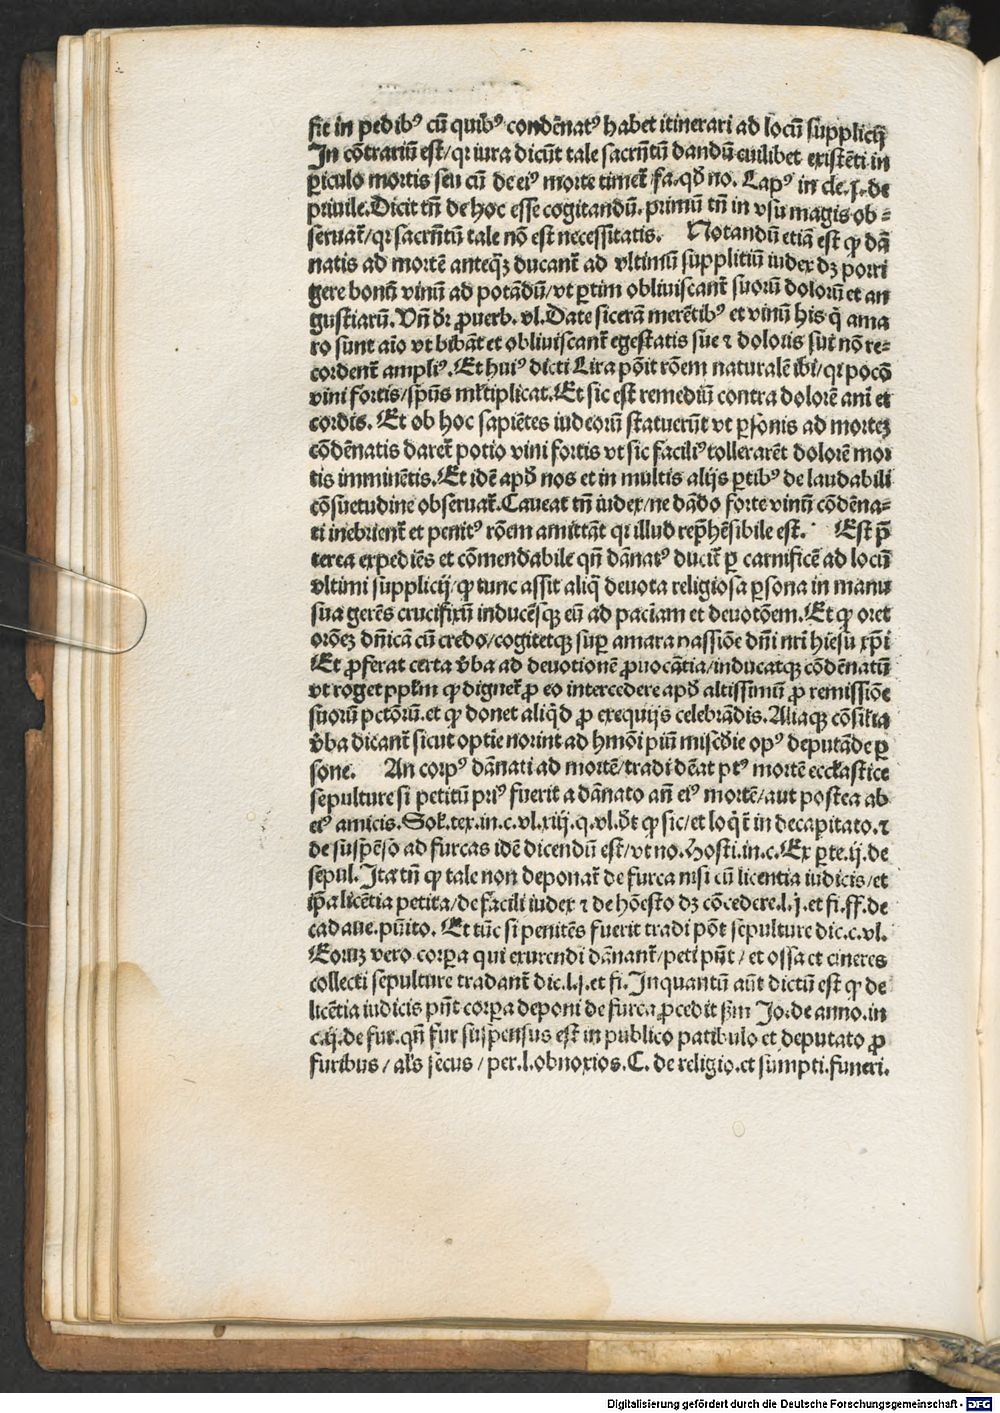 fit in pedibꝰ cū quibꝰ condēnatꝰ habet itinerari ad locū supplicij
In cōtrariū est/qꝛ iura dicūt tale sacrm̄tū dandū cuilibet existēti in
ꝑiculo mortis seu cū de eiꝰ morte timet̄ fa.qd̄ no. Lapꝰ in cle.j.de
priuile.Dicit tn̄ de hoc esse cogitandū. primū tn̄ in vsu magis ob⸗
seruat̄/qꝛ sacrm̄tū tale nō est necessitatis. Notandū etiā est ꝙ dā
natis ad mortē anteqꝫ ducant̄ ad vltimū supplitiū iudex dꝫ porri
gere bonū vinū ad potādū/vt ꝑtim obliuiscant̄ suorū dolorū et an
gustiarū. Vn̄ dr̄ ꝓuerb. vl. Date sicerā merētibꝰ et vinū his q̄ ama
ro sunt aīo vt bibāt et obliuiscant̄ egestatis sue ⁊ doloris sui nō re⸗
cordent̄ ampliꝰ. Et huiꝰ dicti Lira pōit rōem naturalē ibi/qꝛ pocō
vini fortis/spūs mltiplicat. Et sic est remediū contra dolorē ani et
cordis. Et ob hoc sapiētes iudeorū statuerūt vt ꝑsonis ad morteꝫ
cōdēnatis daret̄ potio vini fortis vt sic faciliꝰ tollerarēt dolorē mor
tis imminētis. Et idē apd̄ nos et in multis alijs ꝑtibꝰ de laudabili
cōsuetudine obseruat̄. Caueat tn̄ iudex/ne dādo forte vinū cōdēna⸗
ti inebrient̄ et penitꝰ rōem amittāt qꝛ illud rep̄hēsibile est. Est p̄
terea expediēs et cōmendabile qn̄ dānatꝰ ducit̄ ꝑ carnificē ad locū
vltimi supplicij/ꝙ tunc assit aliq̄ deuota religiosa ꝑsona in manu
sua gerēs crucifixū inducēsqꝫ eū ad paciam et deuotōem. Et ꝙ oret
orōeꝫ dn̄icā cū credo/cogitetqꝫ suꝑ amara passiōe dn̄i nri hiesu xp̄i
Et ꝓferat certa v̄ba ad deuotionē ꝓuocātia/inducatqꝫ cōdēnatū
vt roget pplm̄ ꝙ dignet̄ ꝓ eo intercedere apd̄ altissimū ꝓ remissiōe
suorū pctōrū.et ꝙ donet aliqd̄ ꝓ exequijs celebrādis. Aliaqꝫ cōsilia
v̄ba dicant̄ sicut optīe norint ad hmōi piū miscd̄ie opꝰ deputāde ꝑ
sone. An corpꝰ dānati ad mortē/tradi dēat ptꝰ mortē eccl̄astice
sepulture si petitū priꝰ fuerit a dānato an̄ eiꝰ mortē/aut postea ab
eiꝰ amicis. Sol. tex.in.c.vl.xiij.q.vl.dt̄ ꝙ sic/et loq̄t̄ in decapitato.⁊
de suspēso ad furcas idē dicendū est/vt no. Hosti.in.c.Ex ꝑte.ij.de
sepul. Ita tn̄ ꝙ tale non deponat̄ de furca nisi cū licentia iudicis/et
ip̄a licētia petita/de facili iudex ⁊ de hōesto dꝫ cōcedere.l.j.et fi.ff.de
cadaue.pūito. Et tūc si penitēs fuerit tradi pōt sepulture dic.c.vl.
Eoruꝫ vero corꝑa qui exurendi dānant̄/peti pn̄t/et ossa et cineres
collecti sepulture tradant̄ dic.l.j.et fi. Inquantū aūt dictū est ꝙ de
licētia iudicis pn̄t corꝑa deponi de furca ꝓcedit ẜm Jo.de anno.in
c.ij.de fur.qn̄ fur suspensus est in publico patibulo et deputato ꝓ
furibus/als̄ secus/per.l.obnoxios.C.de religio.et sumpti.funeri.
Digitalisierung gefördert durch die Deutsche Forschungsgemeinschaft - DFG